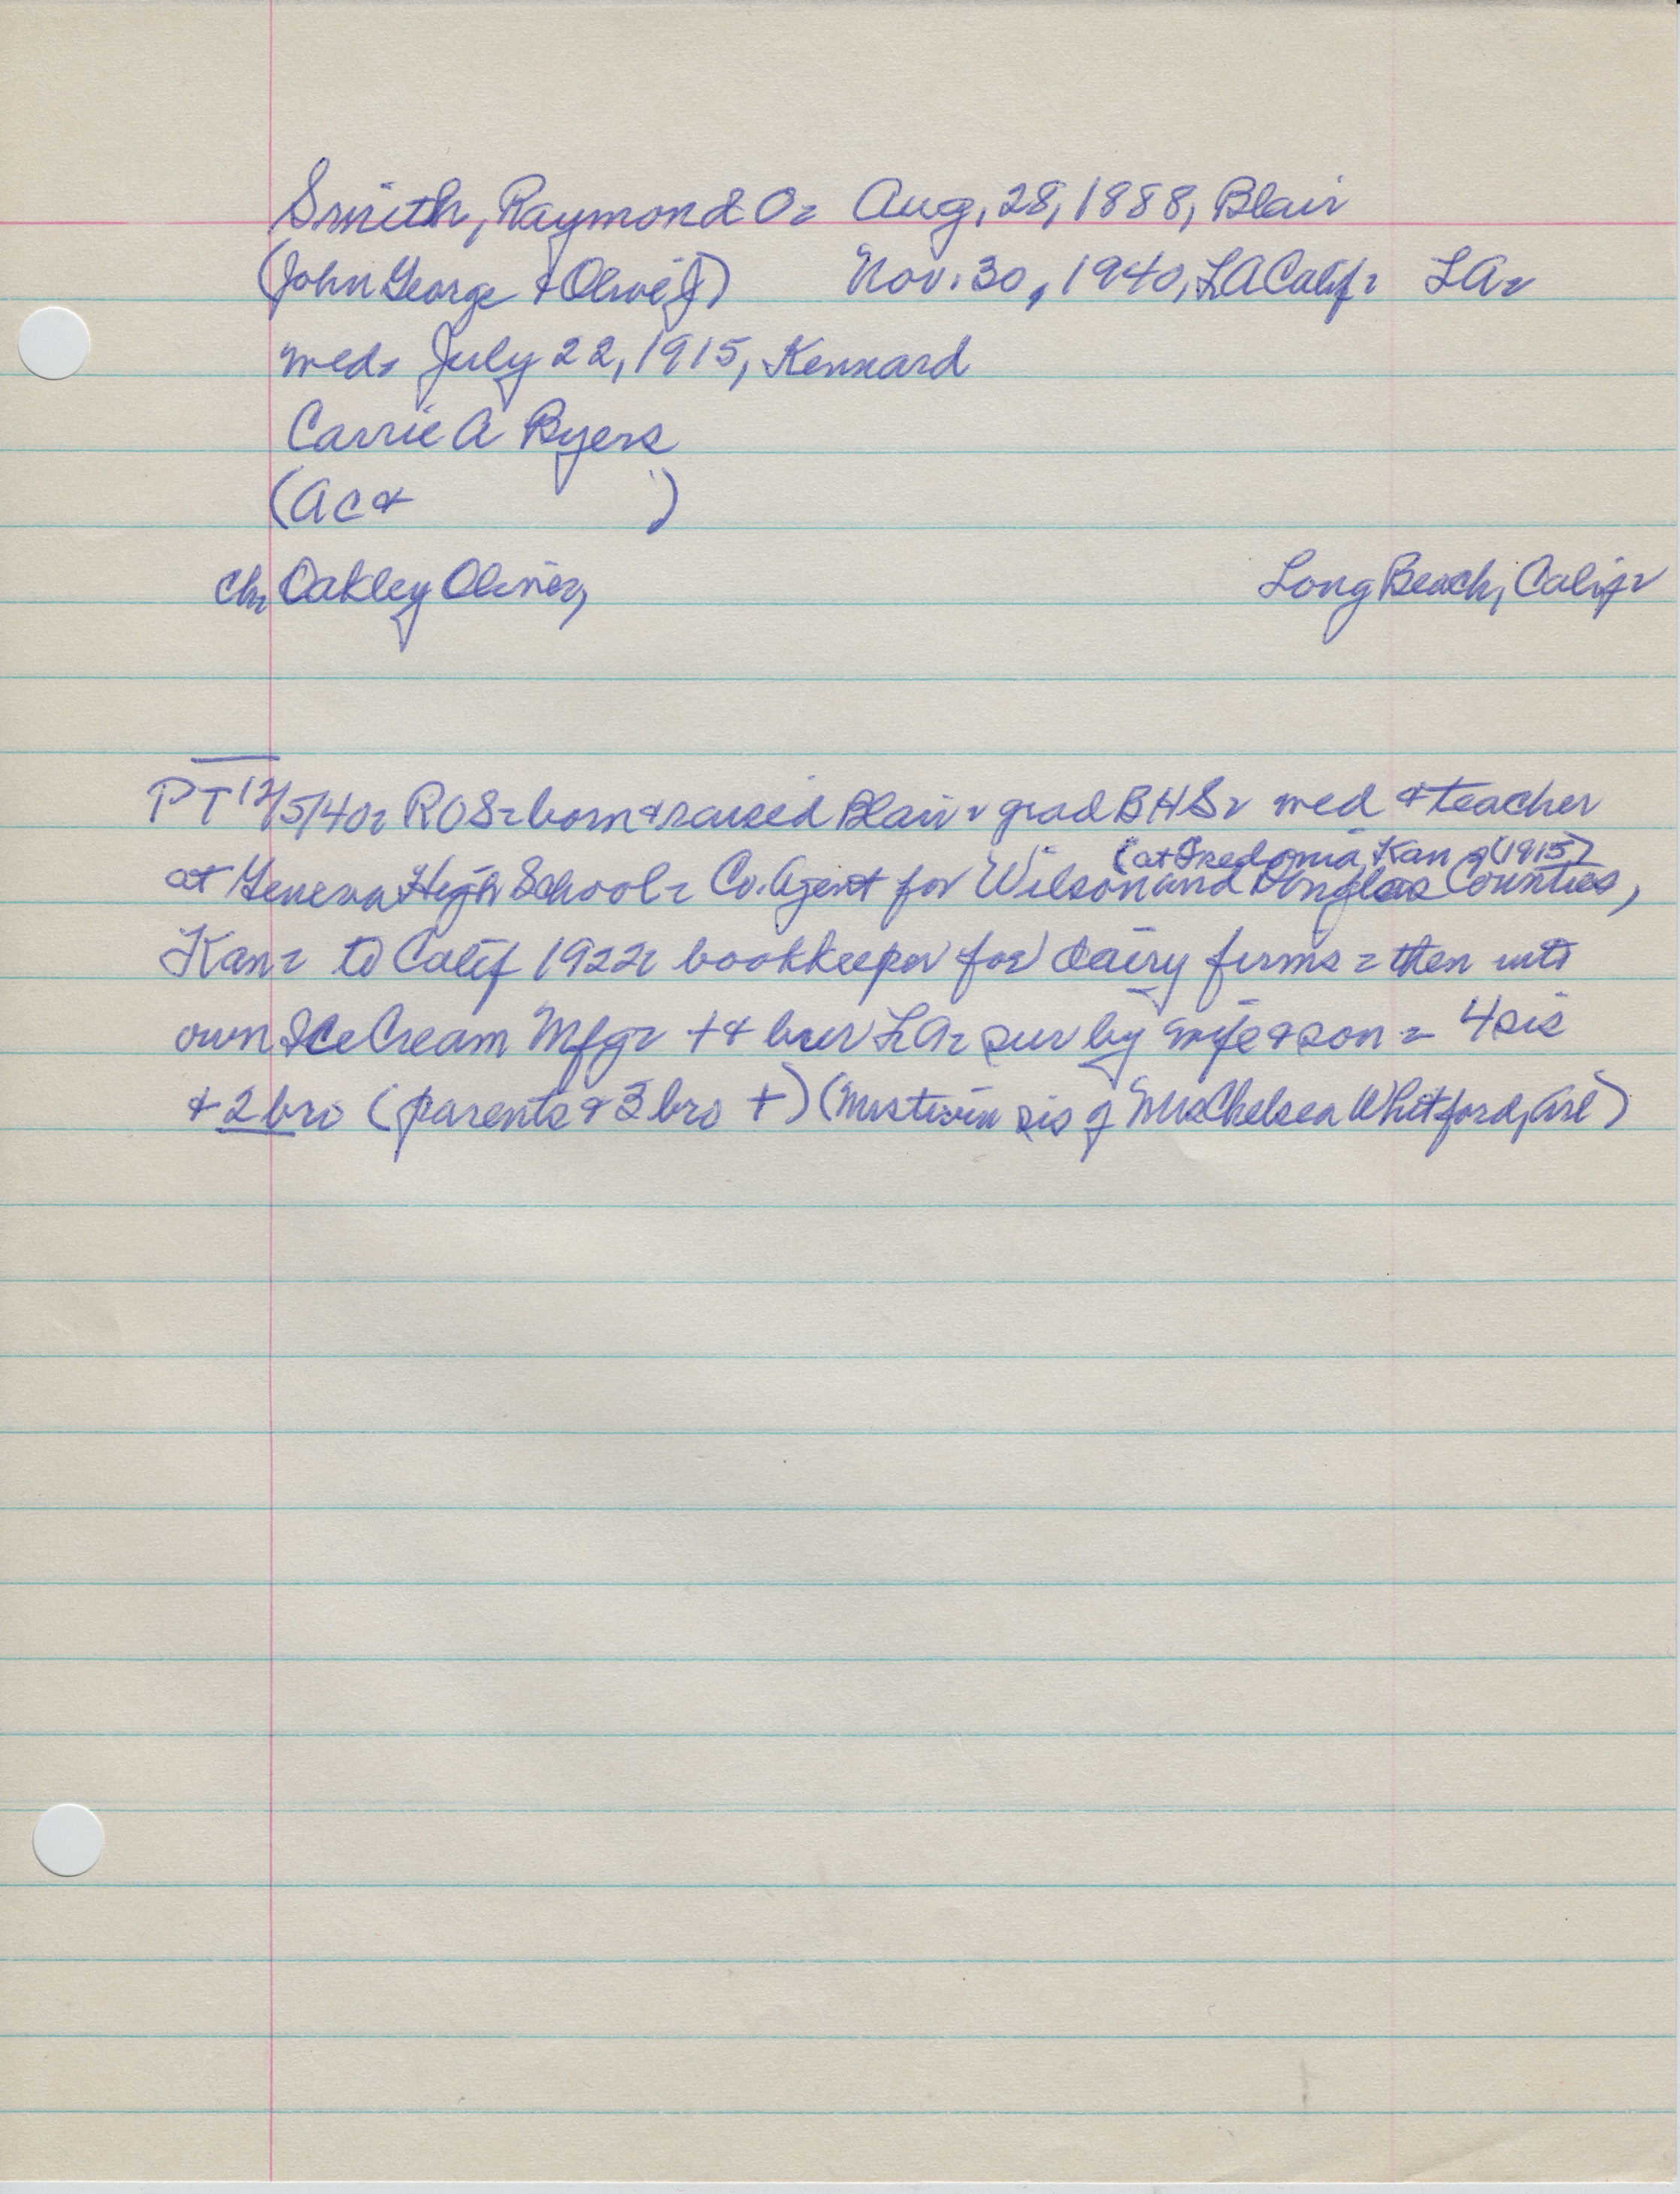 Smith, Raymond O- Aug. 28, 1888, Blair
(John George & Olive J) Nov. 30, 1940, LA Calif- LA-
wed- July 22, 1915, Kennard
Carrie A Byers
(AC & )
ch- Oakley Oliver, Long Beach, Calif-
PT 12/5/40- ROS- born & raised Blair- grad BHS- wed & teacher
(at Fredonia, Kan (1915)
at Geneva High School- Co. Agent for Wilson and Douglas Counties,
Kan- to Calif 1922- bookkeeper for dairy firms- then into
own Ice Cream Mfg- + & bur LA- sur by wife & son- 4 sis
& 2 bro (parents & 3 bro +) (Mrs twin sis of Mrs Chelsea Whitford, Arl)